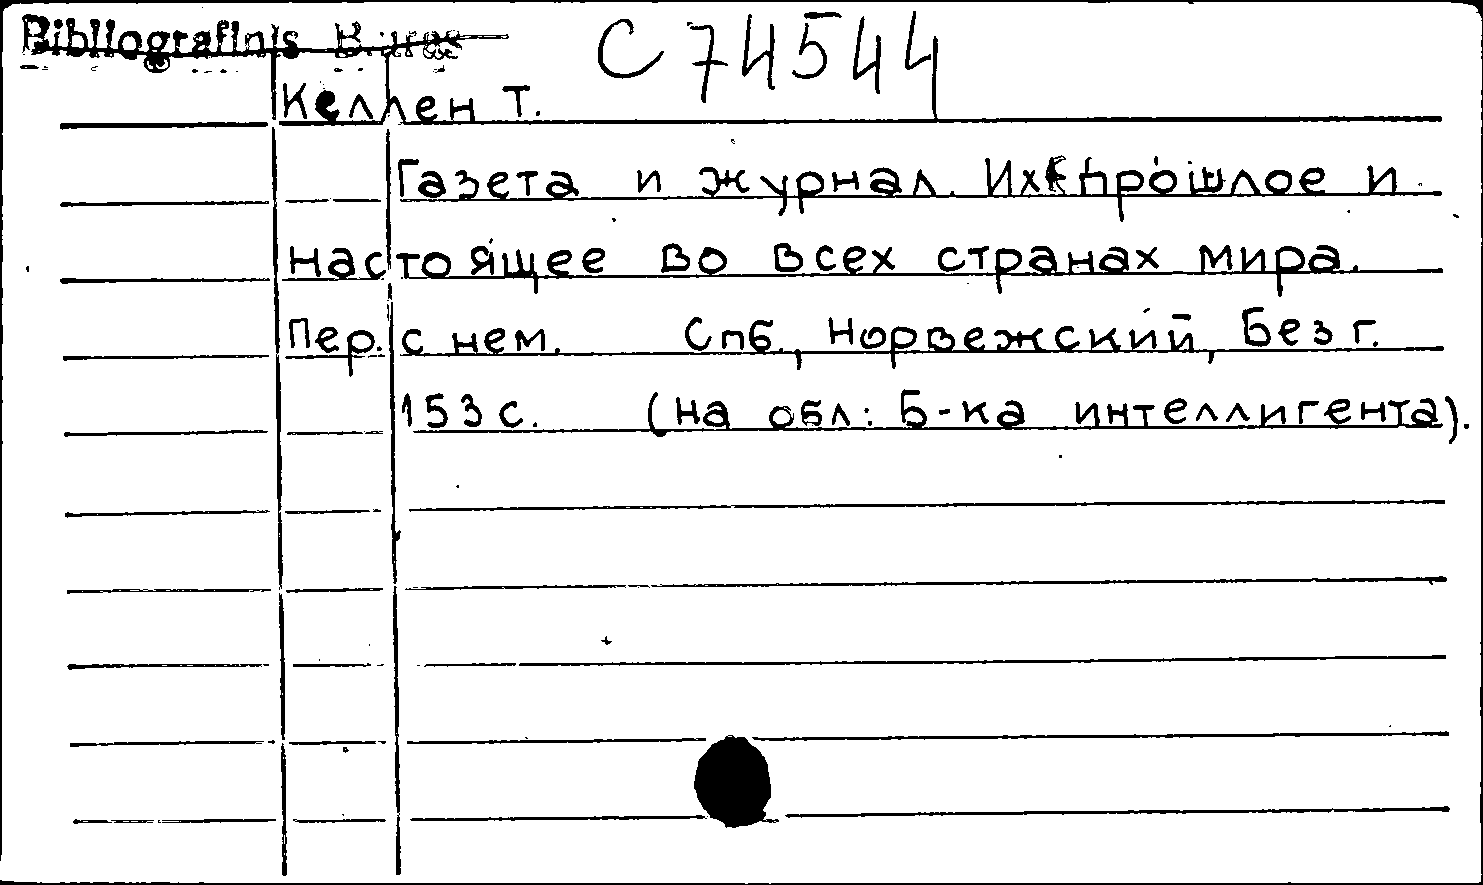 Bibliografinis Biuras
С 74544
Келлен Т.
Газета и журнал. Их прошлое и
настоящее во всех странах мира.
Пер. с нем. Спб., Норвежский, Без г.
153 с. (на обл: Б-ка интеллигента).